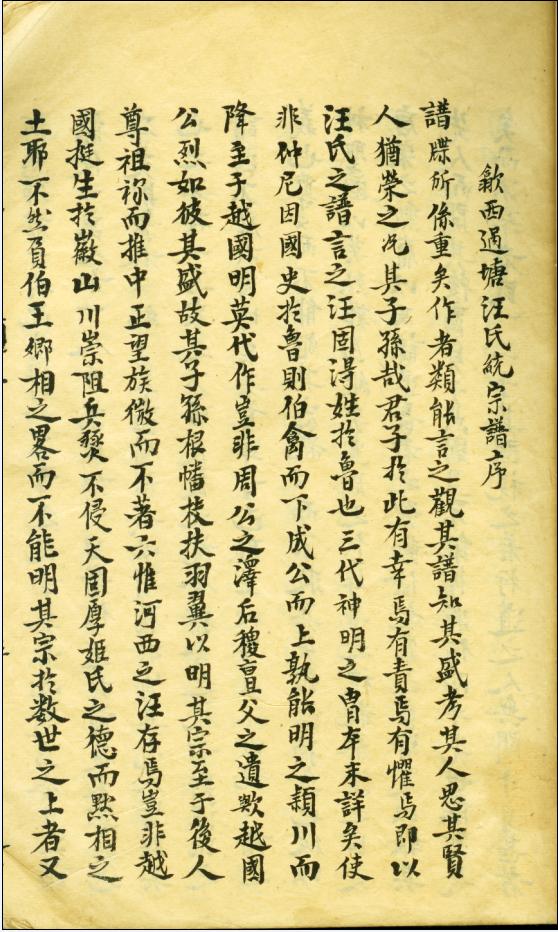 歙西過塘汪氏統宗譜序
譜牒所係重矣作者類能言之觀其譜知其盛考其人思其賢
人猶榮之况其子孫哉君子於此有幸焉有責焉有懼焉即以
汪氏之譜言之汪固淂姓於魯也三代神明之胄本末詳矣使
非仲尼因國史於魯則伯禽而下成公而上孰能明之穎川而
降至于越國明英代作豈非周公之澤后稷亶父之遺歟越國
公烈如彼其盛故其子孫根幡枝扶羽翼以明其宗至于後人
尊祖祢而推中正望族微而不著六惟河西之汪存焉豈非越
國挺生於巖山川崇阻兵燹不侵天固厚姬氏之德而黙相之
土耶不然負伯王鄉相之畧而不能明其宗於数世之上者又